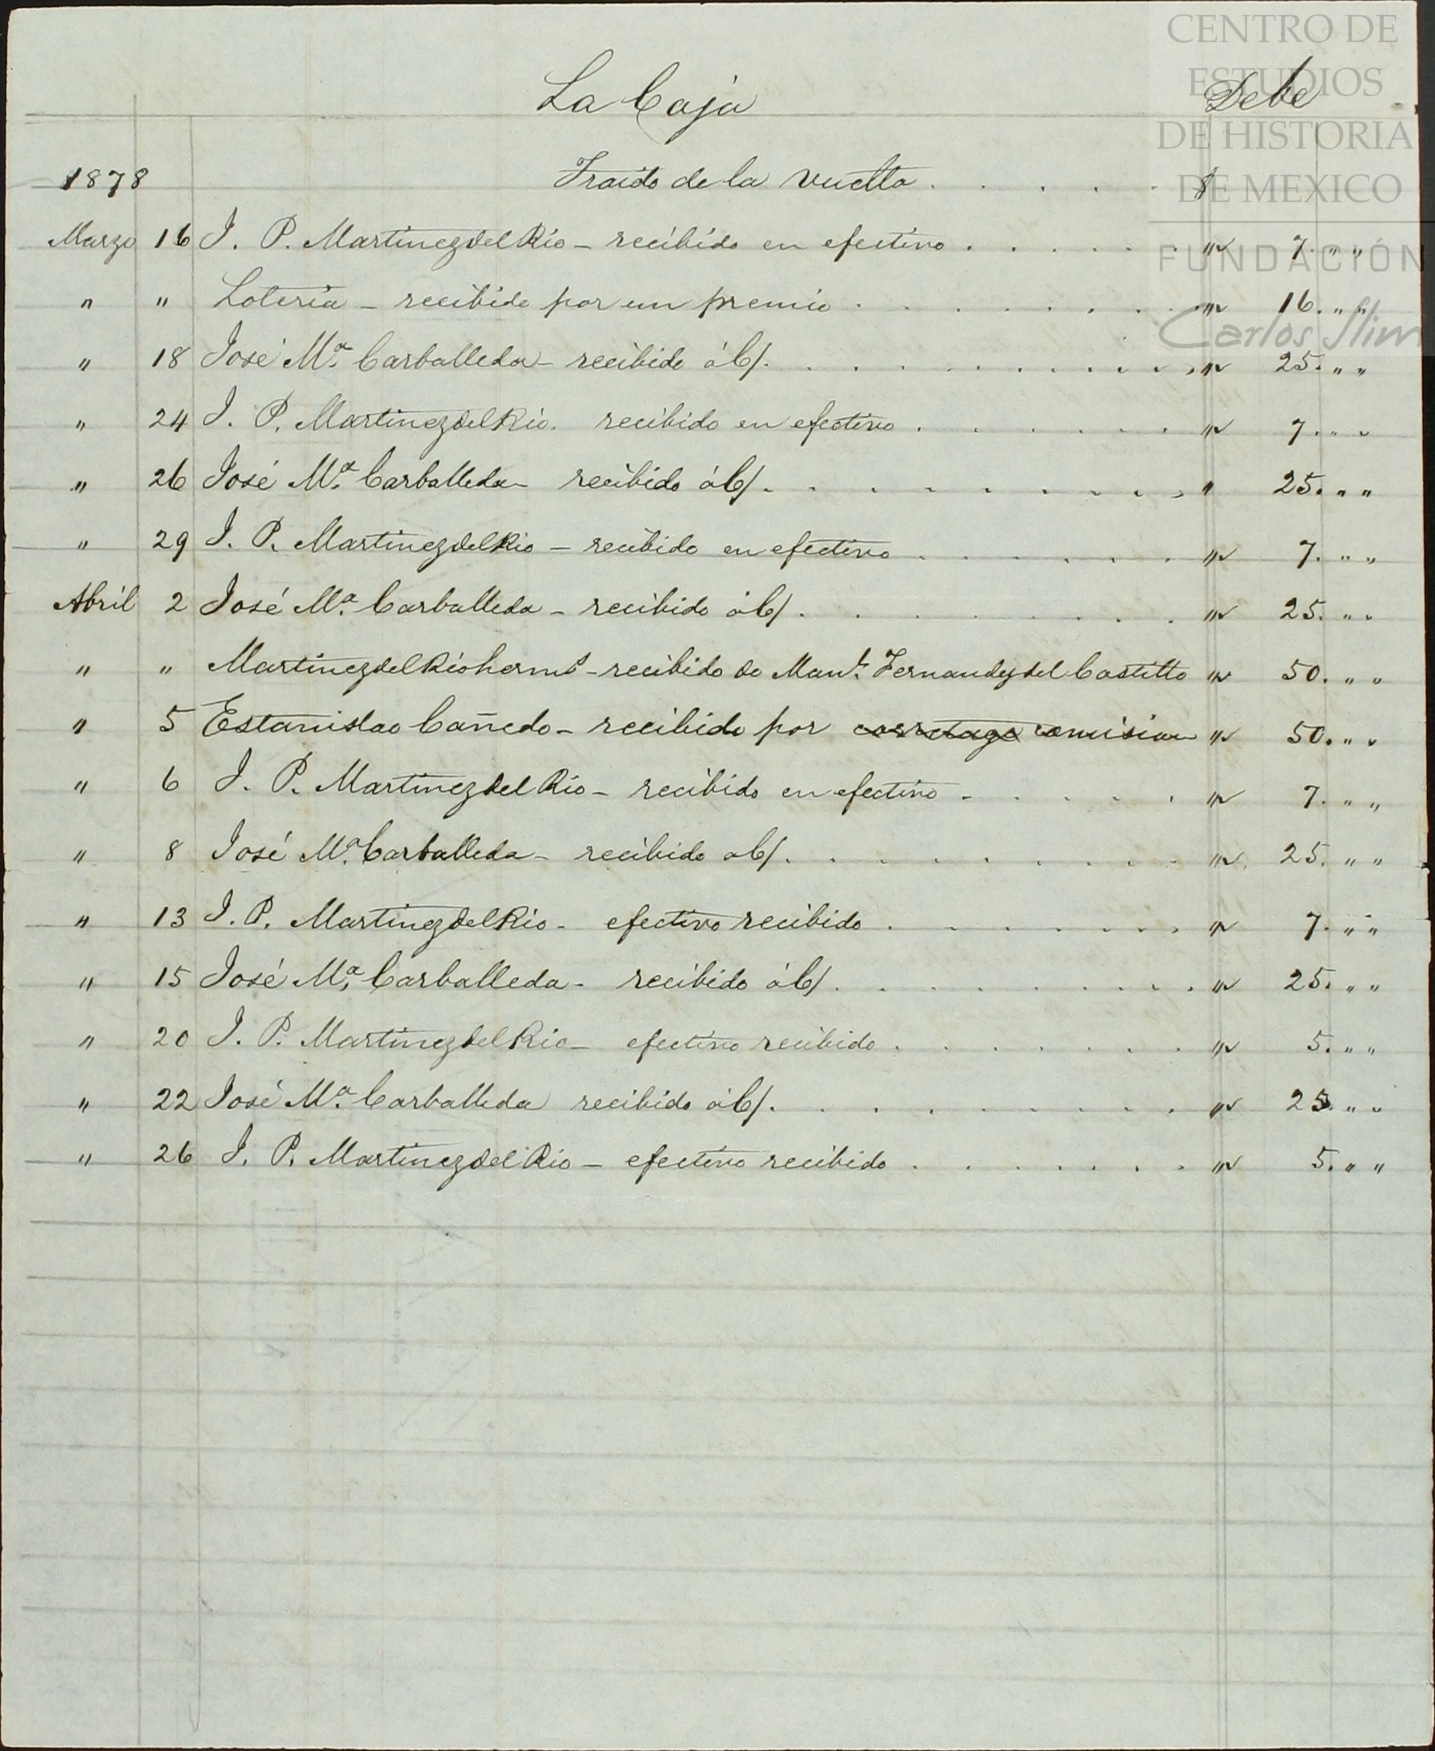 CENTRO DE
ESTUDIOS
DE HISTORIA
DE MEXICO
FUNDACIÓN
Carlos Slim
La Caja Debe
1878 Traido de la vuelta . . . . . $
Marzo 16 J. P. Martinez del Rio – recibido en efectivo . . . . . " 7. " "
" " Loteria – recibido por un premio . . . . . " 16. " "
" 18 José Ma. Carballeda – recibido á C/. . . . . . " 25. " "
" 24 J. P. Martinez del Rio. recibido en efectivo . . . . . " 7. " "
" 26 José Ma. Carballeda – recibido á C/. . . . . . " 25. " "
" 29 J. P. Martinez del Rio – recibido en efectivo . . . . . " 7. " "
Abril 2 José Ma. Carballeda – recibido á C/. . . . . . " 25. " "
" " Martinez del Rio herms. – recibido de Manl. Fernandez del Castillo " 50. " "
" 5 Estanislao Cañedo – recibido por corretage comision " 50. " "
" 6 J. P. Martinez del Rio – recibido en efectivo . . . . . " 7. " "
" 8 José Ma. Carballeda – recibido a C/. . . . . . " 25. " "
" 13 J. P. Martinez del Rio – efectivo recibido . . . . . " 7. " "
" 15 José Ma. Carballeda – recibido á C/. . . . . . " 25. " "
" 20 J. P. Martinez del Rio – efectivo recibido . . . . . " 5. " "
" 22 José Ma. Carballeda recibido á C/. . . . . . " 25. " "
" 26 J. P. Martinez del Rio – efectivo recibido . . . . . " 5. " "